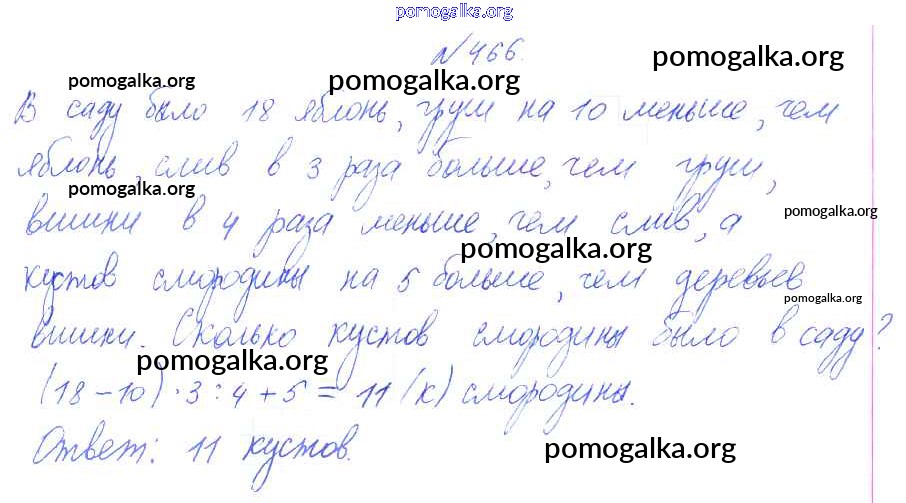 pomogalka.org
№466.
pomogalka.org pomogalka.org pomogalka.org
В саду было 18 яблонь, груш на 10 меньше, чем
яблонь, слив в 3 раза больше, чем груш,
pomogalka.org
вишни в 4 раза меньше, чем слив, а
pomogalka.org
pomogalka.org
кустов смородины на 5 больше, чем деревьев
pomogalka.org
вишни. Сколько кустов смородины было в саду?
pomogalka.org
(18-10)·3:4+5=11 (к) смородины.
Ответ: 11 кустов.
pomogalka.org